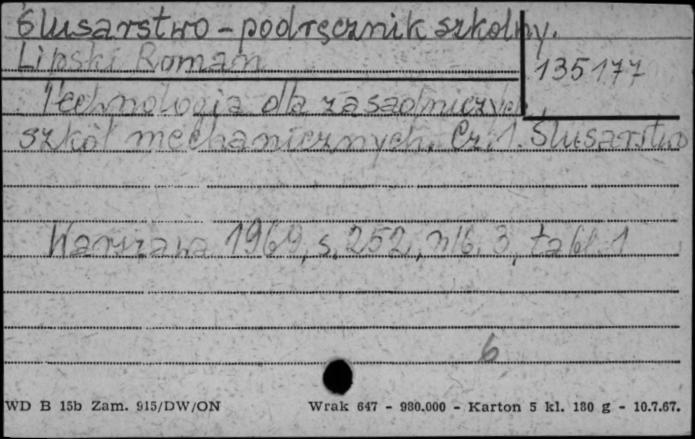 Ślusarstwo - podręcznik szkolny.
Lipski Roman
135177
Technologia dla zasadniczych
szkół mechanicznych. Cz. 1. Ślusarstwo
Warszawa 1969, s. 252, nlb. 3, tabl. 1
6
WD B 15b Zam. 915/DW/ON Wrak 647 - 980.000 - Karton 5 kl. 180 g - 10.7.67.